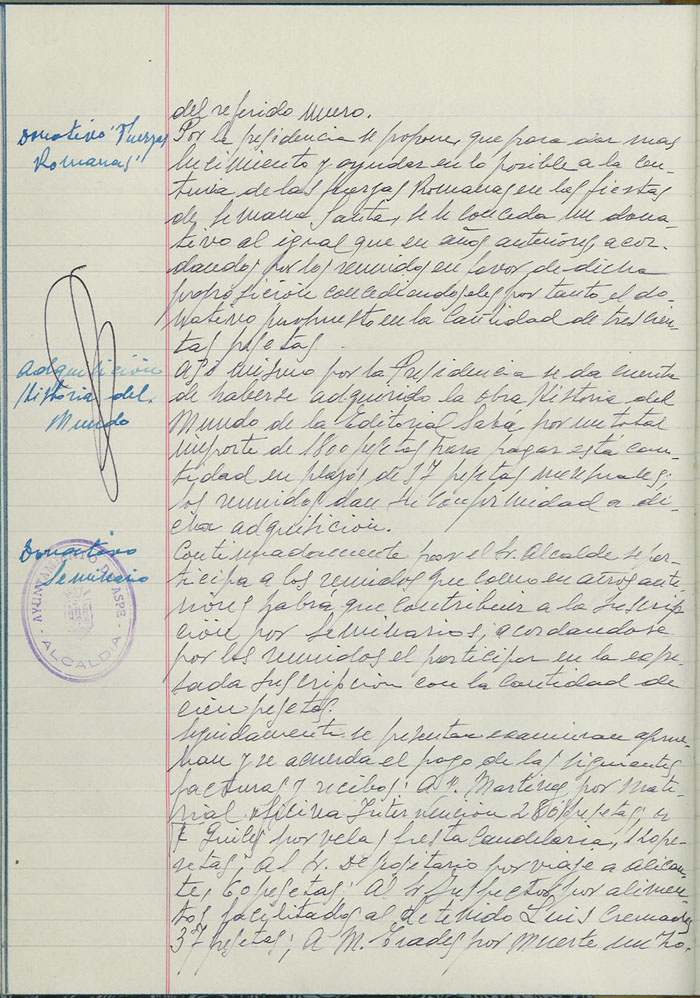 del referido muro.
Donativo "Fuerzas
Romanas"
Por la presidencia se propone, que para dar mas
lucimiento y ayudar en lo posible a la Cen-
turia de las fuerzas Romanas en las fiestas
de Semana Santa, se le conceda un dona-
tivo al igual que en años anteriores, acor-
dandos por los reunidos en favor de dicha
proposición concediendoseles por tanto, el do-
nativo propuesto en la Cantidad de trescien-
tas pesetas.
Adquisición
Historia del
Mundo
Asi mismo por la Presidencia se da cuenta
de haberse adquirido la obra Historia del
Mundo de la Editorial Salva por un total
importe de 1800 pesetas para pagar esta can-
tidad en plazos de 37 pesetas mensuales;
los reunidos dan su conformidad a di-
cha adquisición.
Donativo
Seminario
AYUNTAMIENTO DE ASPE
ALCALDIA
Continuadamente por el Sr. Alcalde se par-
ticipa a los reunidos que como en años ante-
riores habrá que contribuir a la suscrip
ción por Seminarios; acordandose
por los reunidos el participar en la expre-
sada suscripción con la Cantidad de
cien pesetas.
Seguidamente se presentan examinan aprue-
ban y se acuerda el pago de las siguientes
facturas y recibos: A Martinez por mate-
rial oficina Intervención 280 pesetas; a
Guiles por velas fiesta Candelaria, 120 pe-
setas; Al Sr. Depositario por viaje a Alican-
te, 60 pesetas; Al Sr. Inspector por alimen-
tos facilitados al detenido Luis Cremades
37 pesetas; A M. Prades por muerte un zo-